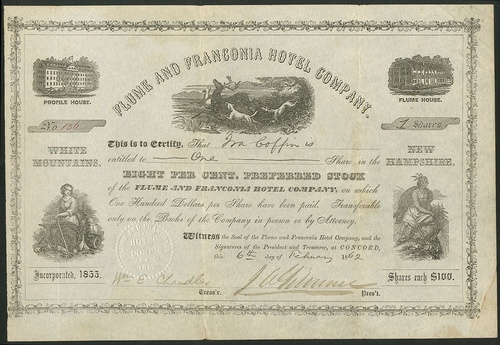 FLUME AND FRANCONIA HOTEL COMPANY.
PROFILE HOUSE.
FLUME HOUSE.
No. 136
1 Shares
WHITE MOUNTAINS.
NEW HAMPSHIRE.
This is to Certify, That Ira Coffin is
entitled to One Share in the
EIGHT PER CENT. PREFERRED STOCK
of the FLUME AND FRANCONIA HOTEL COMPANY, on which
One Hundred Dollars per Share have been paid. Transferable
only on the Books of the Company in person or by Attorney.
Witness the Seal of the Flume and Franconia Hotel Company, and the
Signatures of the President and Treasurer, at CONCORD,
this 6th day of February 1862
Incorporated, 1855.
Wm E Chandler
Treas'r.
Pres't.
Shares each $100.